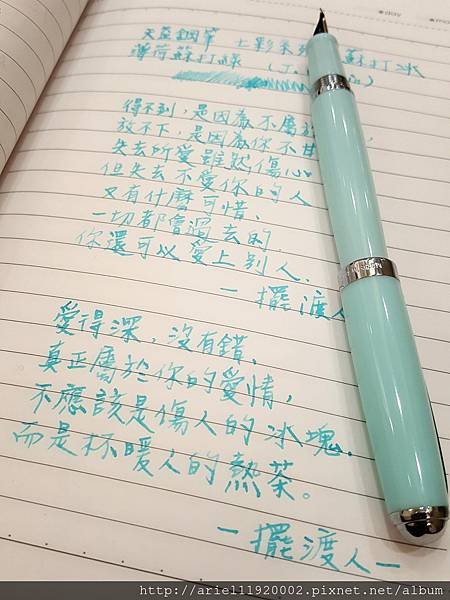 天益鋼筆 七彩系列 蘇打冰
薄荷蘇打綠 (J
得不到,是因為不屬於
放不下,是因為你不甘
失去所愛雖然傷心
但失去不愛你的人
又有什麼可惜、
一切都會過去的
你還可以愛上別人、
— 擺渡人
愛得深,沒有錯、
真正屬於你的愛情,
不應該是傷人的冰塊、
而是杯暖人的熱茶。
— 擺渡人 —
day
http://ariel11920002.pixnet.net/album